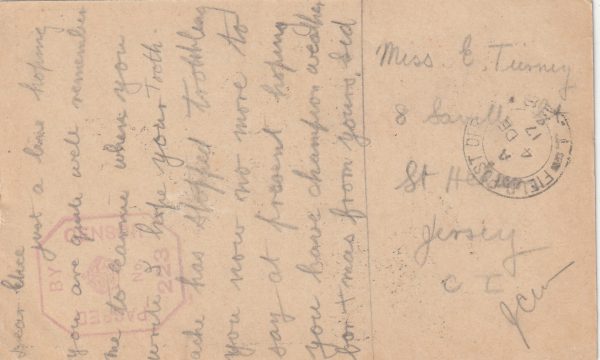 Dear Elice
just a line hoping
you are quite well remember
me to Jamie when you
write I hope your Troth-
ache has stopped trobbleng
you now no more to
say at present hoping
you have champion weather
for Xmas from yours Sid
Miss E. Tierney
8 Savill
St Hel
Jersey
C I
PASSED
BY CENSOR
No
223
FIELD POST OFFICE
DE
17